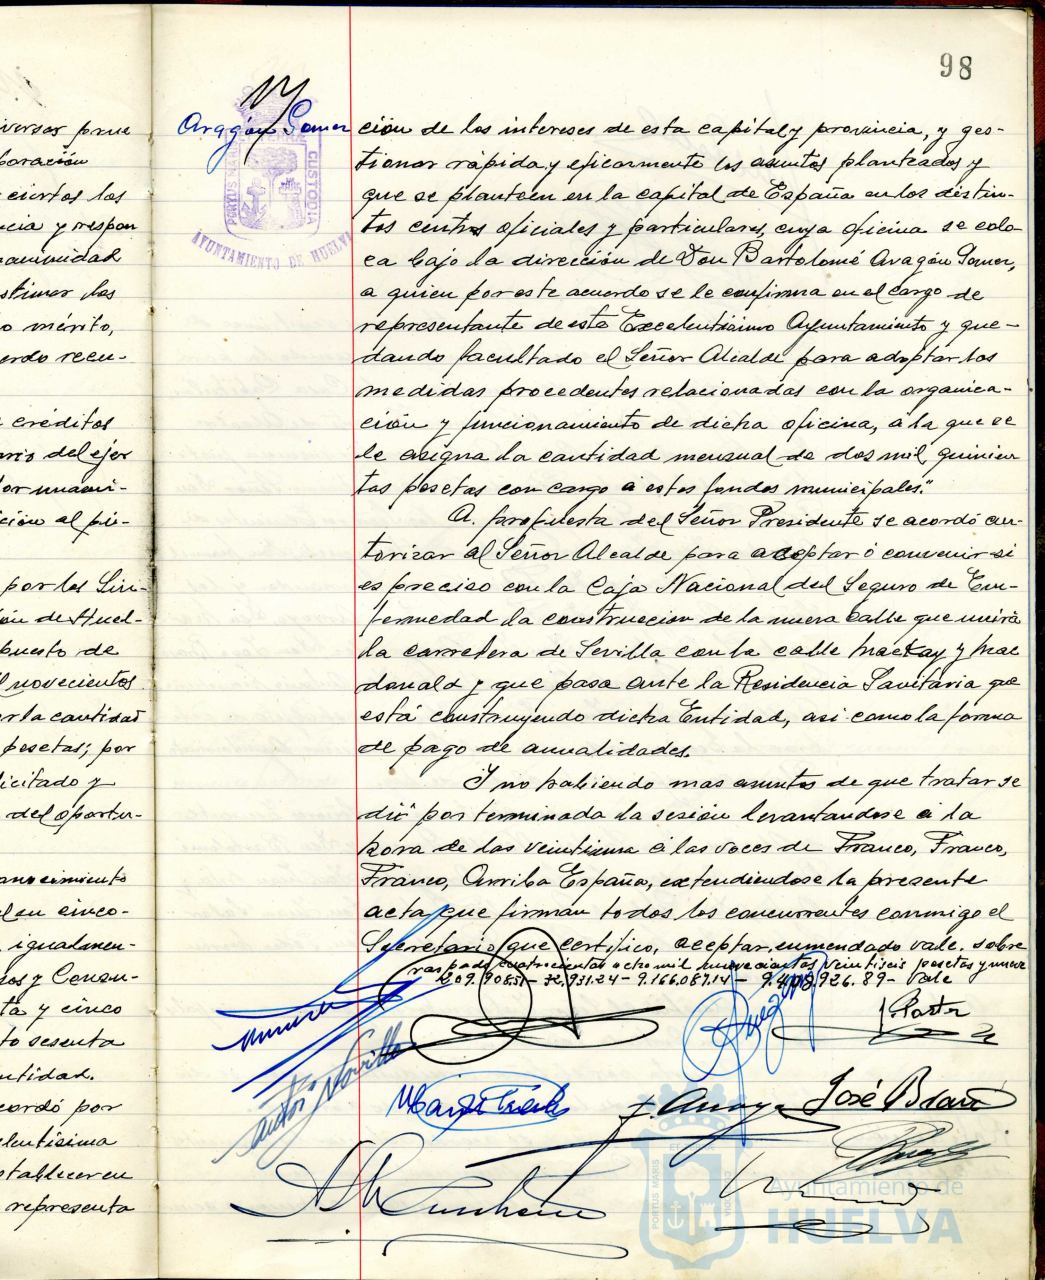 98
Aragón Gomez
PORTUS MARIS
CUSTODIA
AYUNTAMIENTO DE HUELVA
versos prue
boración
ciertos los
ncia y respon
nanimidad
stimar los
o mérito,
erdo recu-
créditos
ario del ejer
por unani-
ción al pú-
por los Sin-
ión de Huel-
puesto de
l novecientos
er la cantidad
pesetas; por
licitado y
del oportu-
anocimiento
l en cinco-
igualmen-
os y Consu-
ta y cinco
to sesenta
ntidad.
cordó por
lentísima
stablecer en
representa
ción de los intereses de esta capital y provincia, y ges-
tionar rápida y eficazmente los asuntos planteados y
que se planteen en la capital de España en los distin-
tos centros oficiales y particulares, cuya oficina se colo-
ca bajo la dirección de Don Bartolomé Aragón Gomez,
a quien por este acuerdo se le confirma en el cargo de
representante de este Excelentísimo Ayuntamiento y que-
dando facultado el Señor Alcalde para adoptar las
medidas procedentes relacionadas con la organiza-
ción y funcionamiento de dicha oficina, á la que se
le asigna la cantidad mensual de dos mil quinien
tas pesetas con cargo á estos fondos municipales."
A propuesta del Señor Presidente se acordó au-
torizar al Señor Alcalde para aceptar ó convenir si
es preciso con la Caja Nacional del Seguro de En-
fermedad la construccion de la nueva calle que unirá
la carretera de Sevilla con la calle Mackay y Mac
donald y que pasa ante la Residencia Sanitaria que
está construyendo dicha Entidad, asi como la forma
de pago de anualidades.
Y no habiendo mas asuntos de que tratar se
dió por terminada la sesión levantandose á la
hora de las veintiuna á las voces de Franco, Franco,
Franco, Arriba España, extendiendose la presente
acta que firman todos los concurrentes conmigo el
Secretario que certifico, aceptar, enmendado vale. sobre
cuatrocientos ocho mil novecientas veintiseis pesetas y nueve
9.166.089.14 - 9.408.926.89 - Vale
José
Ayuntamiento de
HUELVA